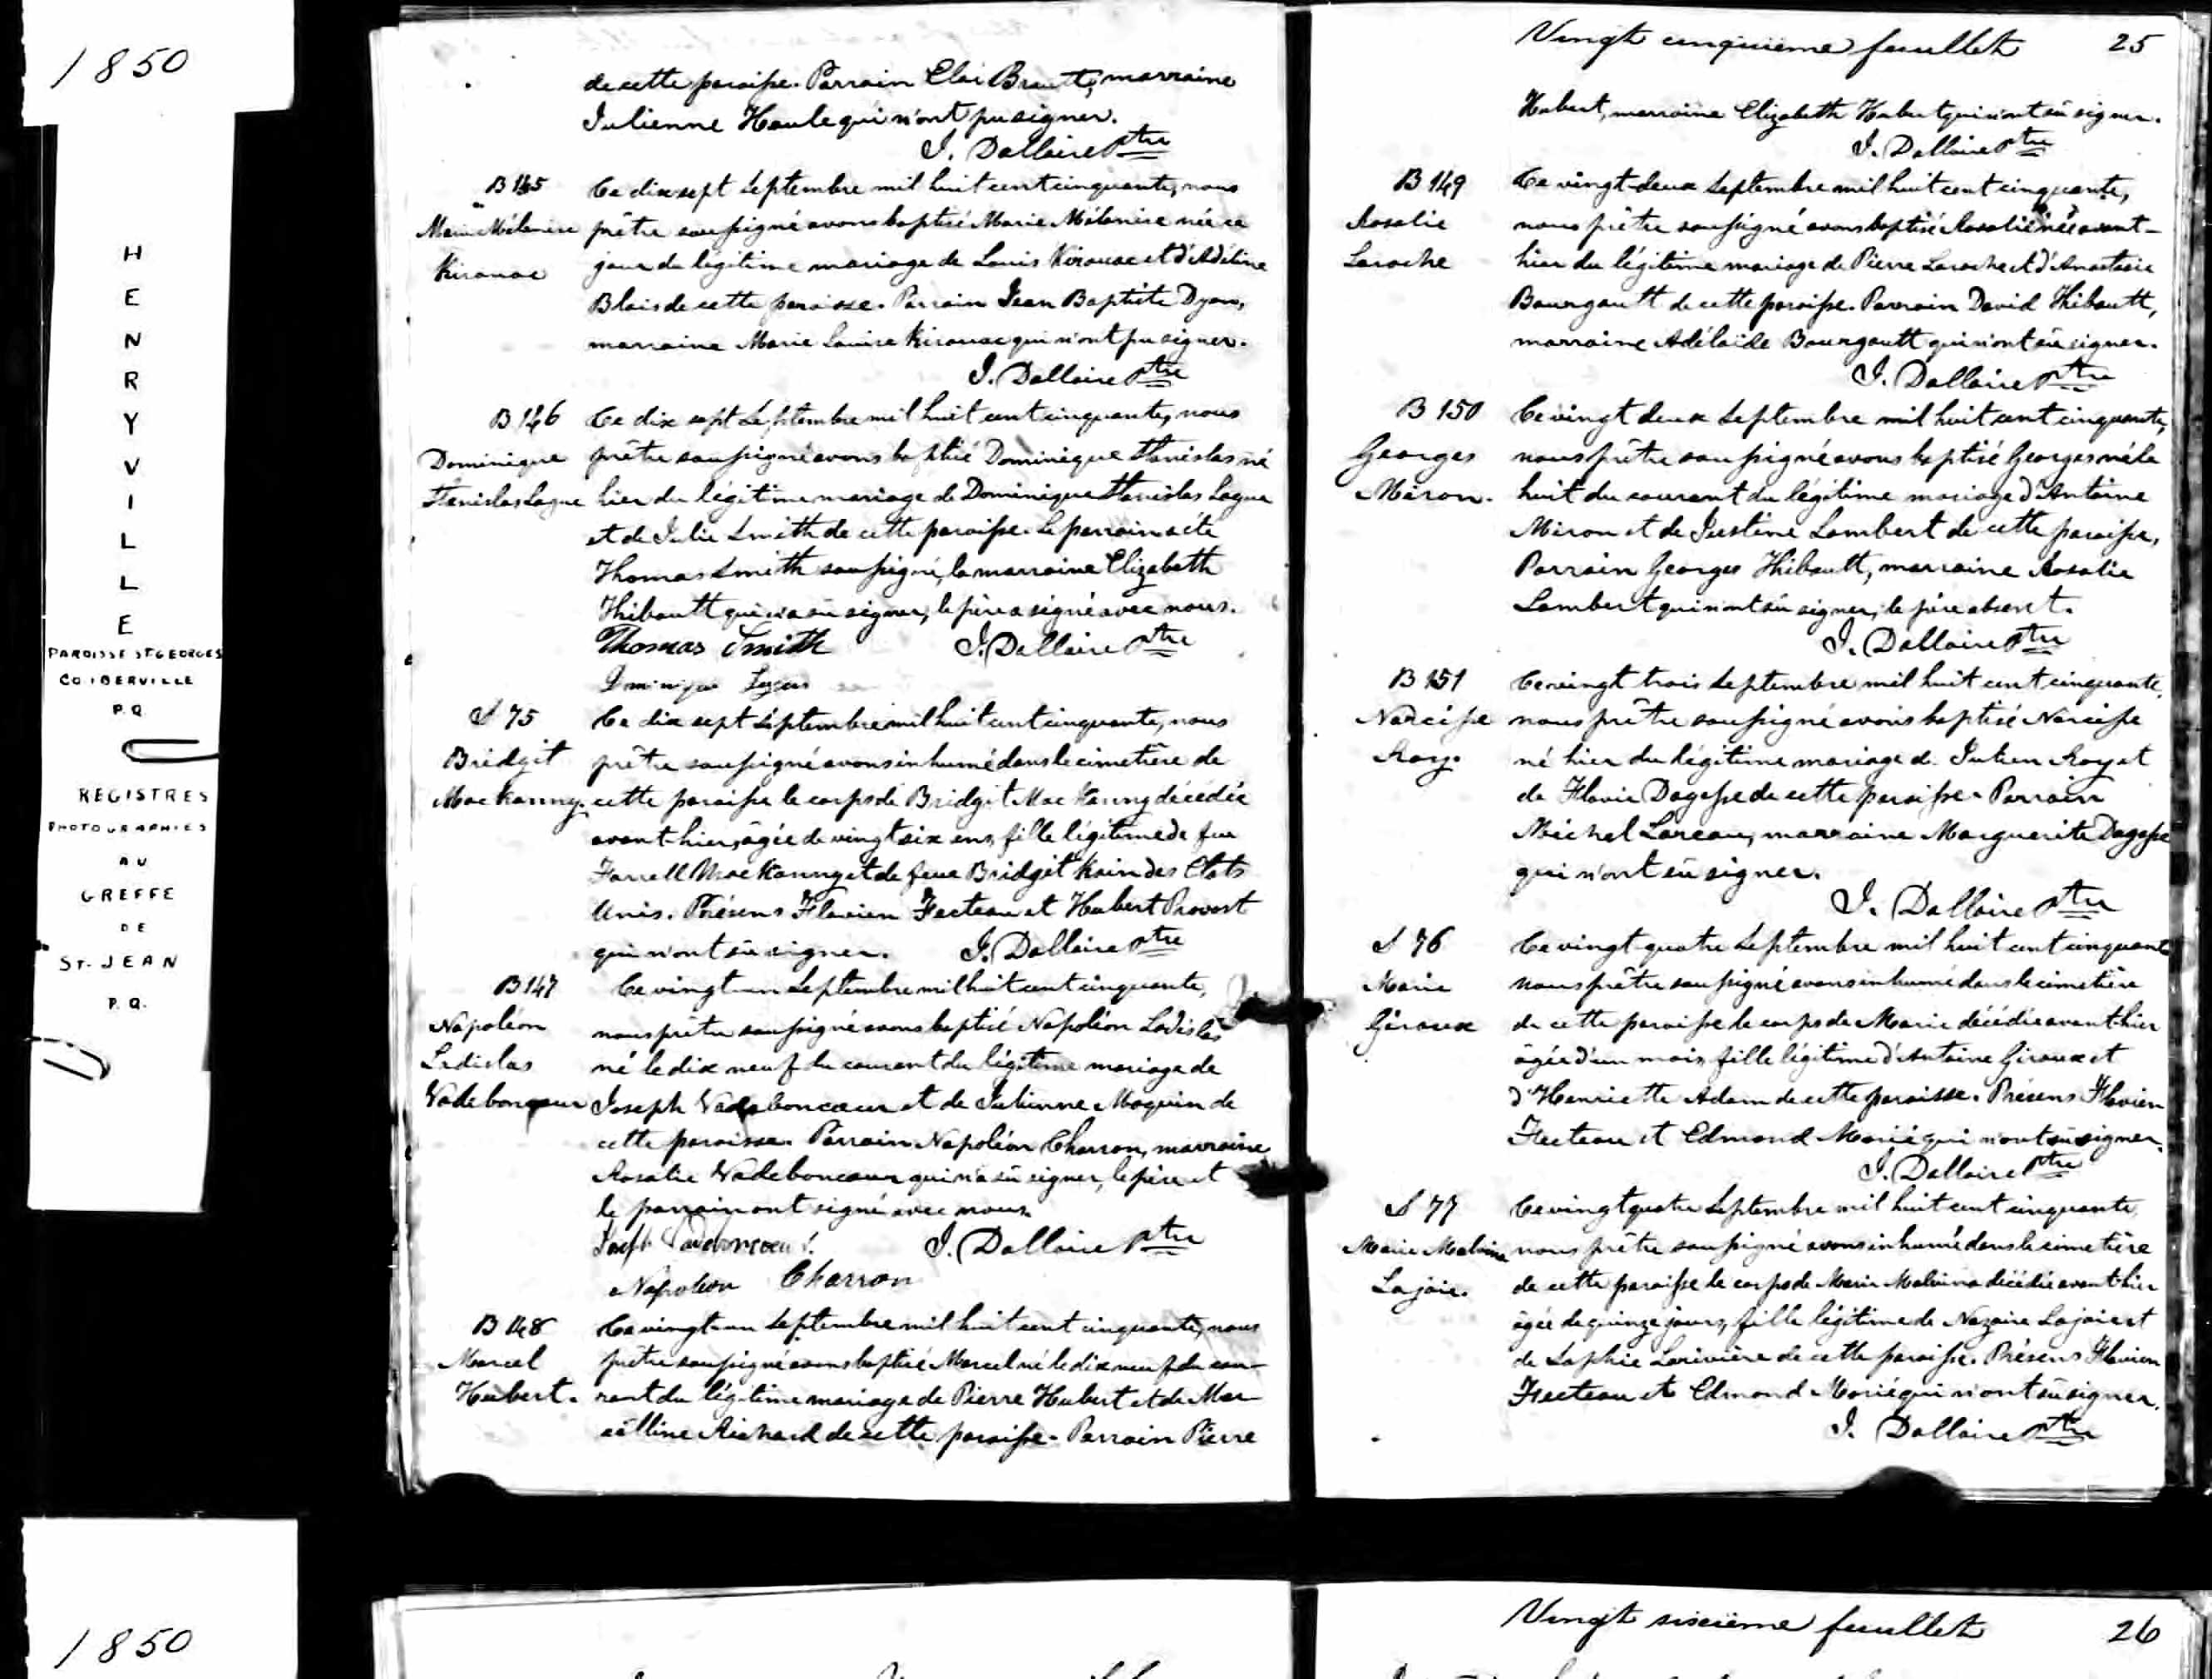 1850
HENRYVILLE
PAROISSE ST GEORGES
CO. IBERVILLE
P.Q.
REGISTRES
PHOTOGRAPHIES
AU
GREFFE
DE
ST-JEAN
P.Q.
de cette paroisse. Parrain Eloi marraine
Julienne Houle qui n'ont pu signer.
J. Dallaire Ptre
B 145
Marie Mélenise
Kirouac
Ce dix sept Septembre mil huit cent cinquante, nous
prêtre soussigné avons baptisé Marie Mélenise née ce
jour du légitime mariage de Louis Kirouac et d'Adéline
Blais de cette paroisse. Parrain Jean Baptiste Dyon,
marraine Marie Louise Kirouac qui n'ont pu signer.
J. Dallaire Ptre
B 146
Dominique
Stanislas Lague
Ce dix sept Septembre mil huit cent cinquante, nous
prêtre soussigné avons baptisé Dominique Stanislas né
hier du légitime mariage de Dominique Stanislas Lague
et de Julie Smith de cette paroisse. Le parrain a été
Thomas Smith soussigné, la marraine Elizabeth
Thibault qui n'a sû signer, le père a signé avec nous.
Thomas Smith J. Dallaire Ptre
Dominique
S 75
Bridgit
Mac Kanny.
Ce dix sept Septembre mil huit cent cinquante, nous
prêtre soussigné avons inhumé dans le cimetière de
cette paroisse le corps de Bridgit Mac Kanny décédée
avant-hier, âgée de vingt six ans, fille légitime de feu
Farrell Mac Kanny et de feue Bridgit Kain des Etats
Unis. Présens Flavien Fecteau et Hubert Provost
qui n'ont sû signer. J. Dallaire Ptre
B 147
Napoléon
Ladislas
Vadeboncœur
Ce vingt-un Septembre mil huit cent cinquante,
nous prêtre soussigné avons baptisé Napoléon Ladislas
né le dix neuf du courant du légitime mariage de
Joseph Vadeboncœur et de Julienne Moquin de
cette paroisse. Parrain Napoléon Charron, marraine
Rosalie Vadeboncœur qui n'a sû signer, le père et
le parrain ont signé avec nous.
Joseph J. Dallaire Ptre
Napoleon Charron
B 148
Marcel
Hubert.
Ce vingt-un Septembre mil huit cent cinquante, nous
prêtre soussigné avons baptisé Marcel né le dix neuf du cou-
rant du légitime mariage de Pierre Hubert et de Mar-
célline Richard de cette paroisse. Parrain Pierre
Vingt cinquième feuillet 25
Hubert, marraine Elizabeth Hubert qui n'ont sû signer.
J. Dallaire Ptre
B 149
Rosalie
Laroche
Ce vingt-deux Septembre mil huit cent cinquante,
nous prêtre soussigné avons baptisé Rosalie née avant-
hier du légitime mariage de Pierre Laroche et d'Anastasie
Bourgault de cette paroisse. Parrain David Thibault,
marraine Adélaïde Bourgault qui n'ont sû signer.
J. Dallaire Ptre
B 150
Georges
Miron.
Ce vingt deux Septembre mil huit cent cinquante,
nous prêtre soussigné avons baptisé Georges né le
huit du courant du légitime mariage d'Antoine
Miron et de Justine Lambert de cette paroisse,
Parrain Georges Thibault, marraine Rosalie
Lambert qui n'ont sû signer, le père absent.
J. Dallaire Ptre
B 151
Narcisse
Roy.
Ce vingt trois Septembre mil huit cent cinquante,
nous prêtre soussigné avons baptisé Narcisse
né hier du légitime mariage de Julien Roy et
de Flavie Dagesse de cette paroisse. Parrain
Michel Lareau, marraine Marguerite Dagesse
qui n'ont sû signer.
J. Dallaire Ptre
S 76
Marie
Giroux
Ce vingt-quatre Septembre mil huit cent cinquante
nous prêtre soussigné avons inhumé dans le cimetière
de cette paroisse le corps de Marie décédée avant-hier
âgée d'un mois, fille légitime d'Antoine Giroux et
d'Henriette Adam de cette paroisse. Présens Flavien
Fecteau et Edmond Morié qui n'ont sû signer.
J. Dallaire Ptre
S 77
Marie Malvina
Lajoie.
Ce vingt quatre Septembre mil huit cent cinquante,
nous prêtre soussigné avons inhumé dans le cimetière
de cette paroisse le corps de Marie Malvina décédée avant-hier
âgée de quinze jours, fille légitime de Nazaire Lajoie et
de Sophie Larivière de cette paroisse. Présens Flavien
Fecteau et Edmond Morié qui n'ont sû signer.
J. Dallaire Ptre
1850
Vingt sixième feuillet 26